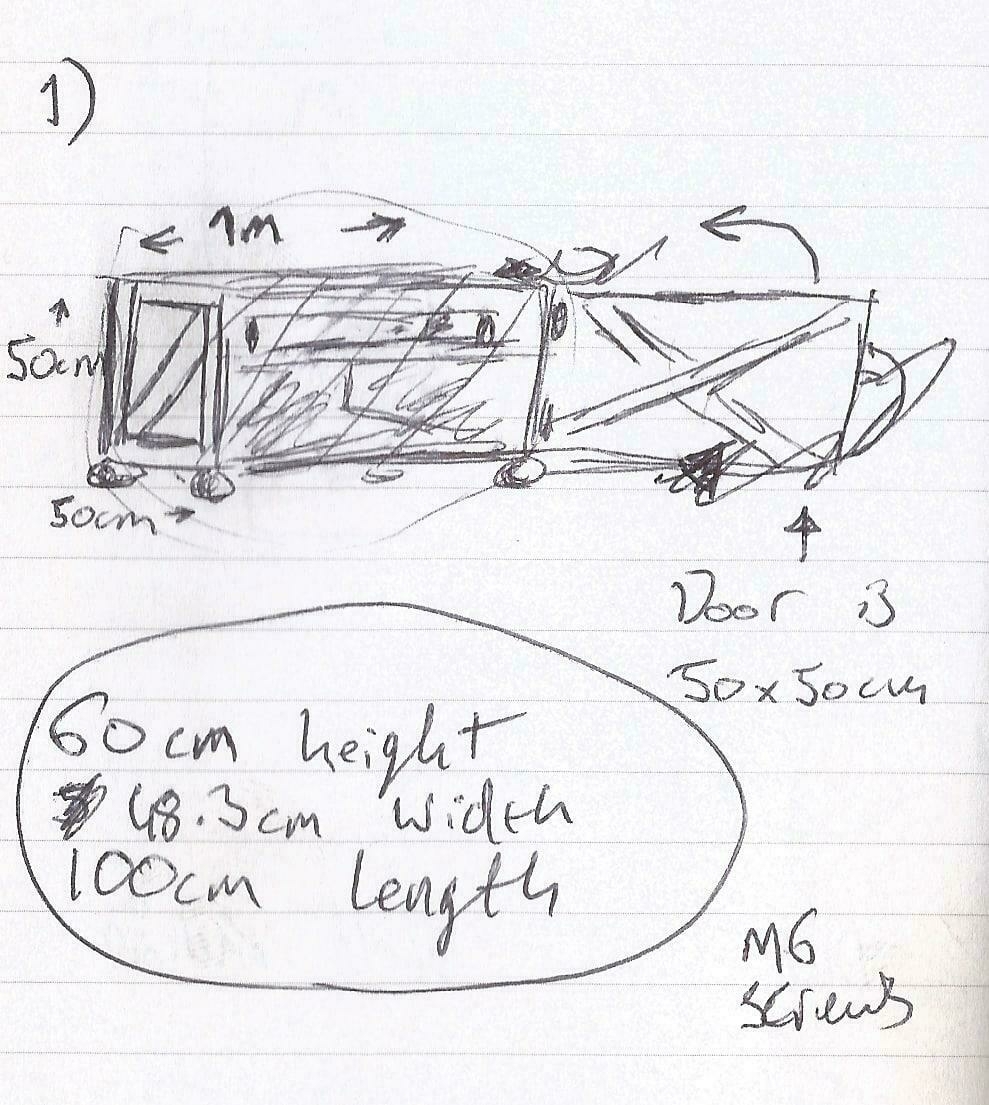 1)
← 1m →
↑
50cm
50cm →
↑
Door is
50x50cm
60cm height
48.3cm width
100cm length
M6
screws